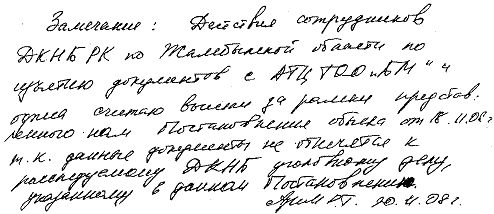 Замечание: Действия сотрудников
ДКНБ РК по Жамбылской области по
изъятию документов с АТЦ ТОО „БМ" и
офиса считаю вышли за рамки представ-
ленного нам Постановление обыска от 18.11.08г
т.к. данные документы не относятся к
расследуемому ДКНБ уголовному делу,
указанному в данном Постановлении.
20.11.08г.